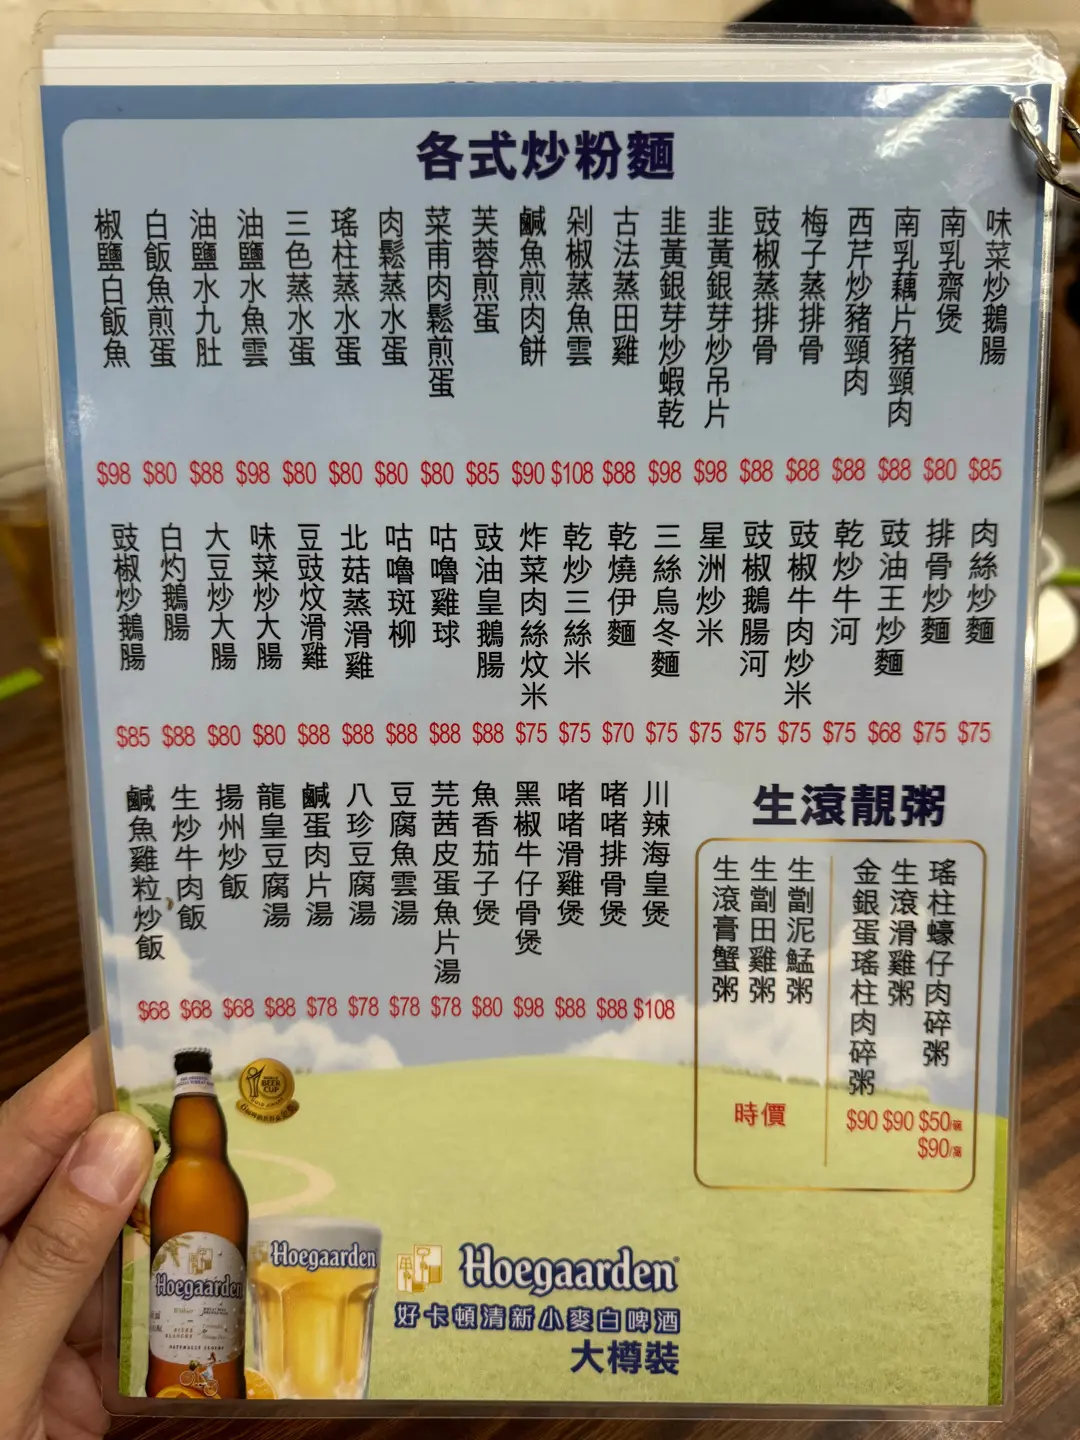 各式炒粉麵
味菜炒鵝腸 $85
南乳齋煲 $80
南乳藕片豬頸肉 $88
西芹炒豬頸肉 $88
梅子蒸排骨 $88
豉椒蒸排骨 $88
韭黃銀芽炒吊片 $98
韭黃銀芽炒蝦乾 $98
古法蒸田雞 $88
剁椒蒸魚雲 $108
鹹魚煎肉餅 $90
芙蓉煎蛋 $85
菜甫肉鬆煎蛋 $80
肉鬆蒸水蛋 $80
瑤柱蒸水蛋 $80
三色蒸水蛋 $80
油鹽水魚雲 $98
油鹽水九肚 $88
白飯魚煎蛋 $80
椒鹽白飯魚 $98
肉絲炒麵 $75
排骨炒麵 $75
豉油王炒麵 $68
乾炒牛河 $75
豉椒牛肉炒米 $75
豉椒鵝腸河 $75
星洲炒米 $75
三絲烏冬麵 $75
乾燒伊麵 $70
乾炒三絲米 $75
炸菜肉絲炆米 $75
豉油皇鵝腸 $88
咕嚕雞球 $88
咕嚕斑柳 $88
北菇蒸滑雞 $88
豆豉炆滑雞 $88
味菜炒大腸 $80
大豆炒大腸 $80
白灼鵝腸 $88
豉椒炒鵝腸 $85
川辣海皇煲 $108
啫啫排骨煲 $88
啫啫滑雞煲 $88
黑椒牛仔骨煲 $98
魚香茄子煲 $80
芫茜皮蛋魚片湯 $78
豆腐魚雲湯 $78
八珍豆腐湯 $78
鹹蛋肉片湯 $78
龍皇豆腐湯 $88
揚州炒飯 $68
生炒牛肉飯 $68
鹹魚雞粒炒飯 $68
生滾靚粥
瑤柱蠔仔肉碎粥 $50/碗 $90/窩
生滾滑雞粥 $90
金銀蛋瑤柱肉碎粥 $90
生劏泥鯭粥
生劏田雞粥
生滾膏蟹粥
時價
BEER CUP
Hoegaarden
Hoegaarden
Hoegaarden
好卡頓清新小麥白啤酒
大樽裝